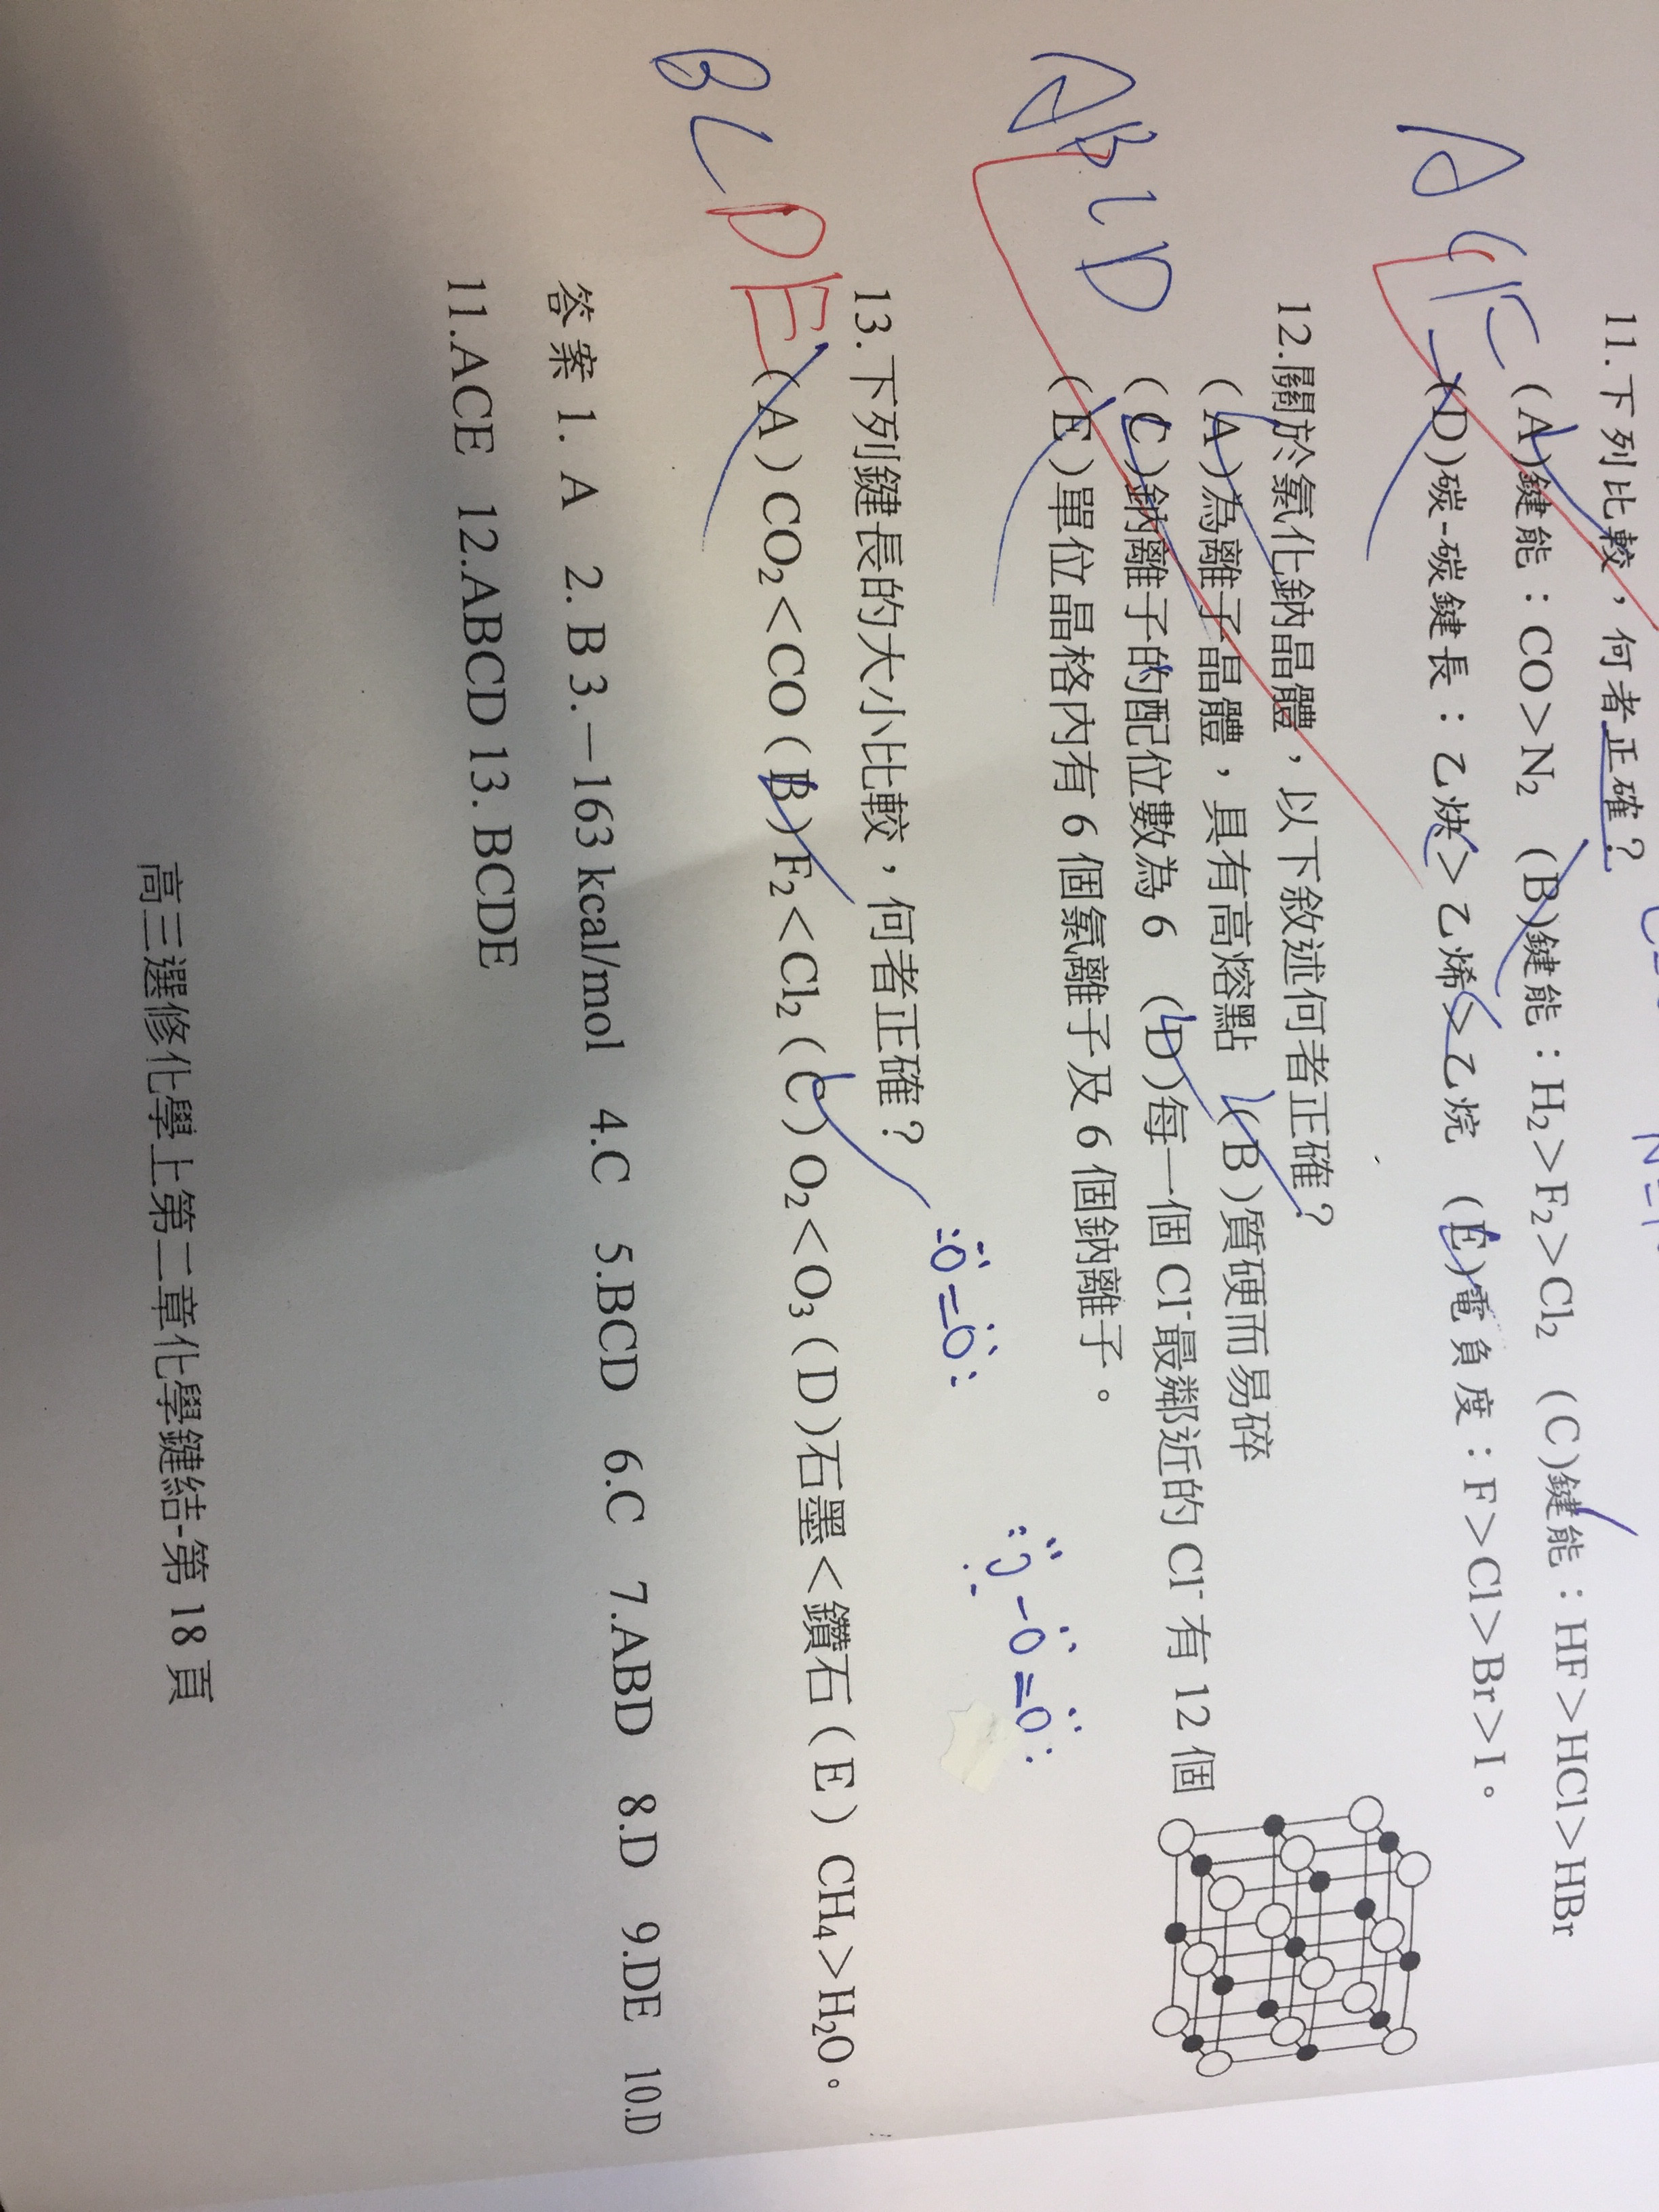 11.下列比較，何者正確？
(A)鍵能：CO＞N₂ (B)鍵能：H₂＞F₂＞Cl₂ (C)鍵能：HF＞HCl＞HBr
(D)碳-碳鍵長：乙炔＞乙烯＞乙烷 (E)電負度：F＞Cl＞Br＞I。
ACE
12.關於氯化鈉晶體，以下敘述何者正確？
(A)為離子晶體，具有高熔點 (B)質硬而易碎
(C)鈉離子的配位數為 6 (D)每一個 Cl⁻最鄰近的 Cl⁻有 12 個
(E)單位晶格內有 6 個氯離子及 6 個鈉離子。
ABCD
13.下列鍵長的大小比較，何者正確？
(A) CO₂＜CO (B) F₂＜Cl₂ (C) O₂＜O₃ (D)石墨＜鑽石 (E) CH₄＞H₂O。
BCDE
:O=O:
:O-O=O:
答案 1. A 2. B 3.－163 kcal/mol 4.C 5.BCD 6.C 7.ABD 8.D 9.DE 10.D
11.ACE 12.ABCD 13. BCDE
高三選修化學上第二章化學鍵結-第 18 頁